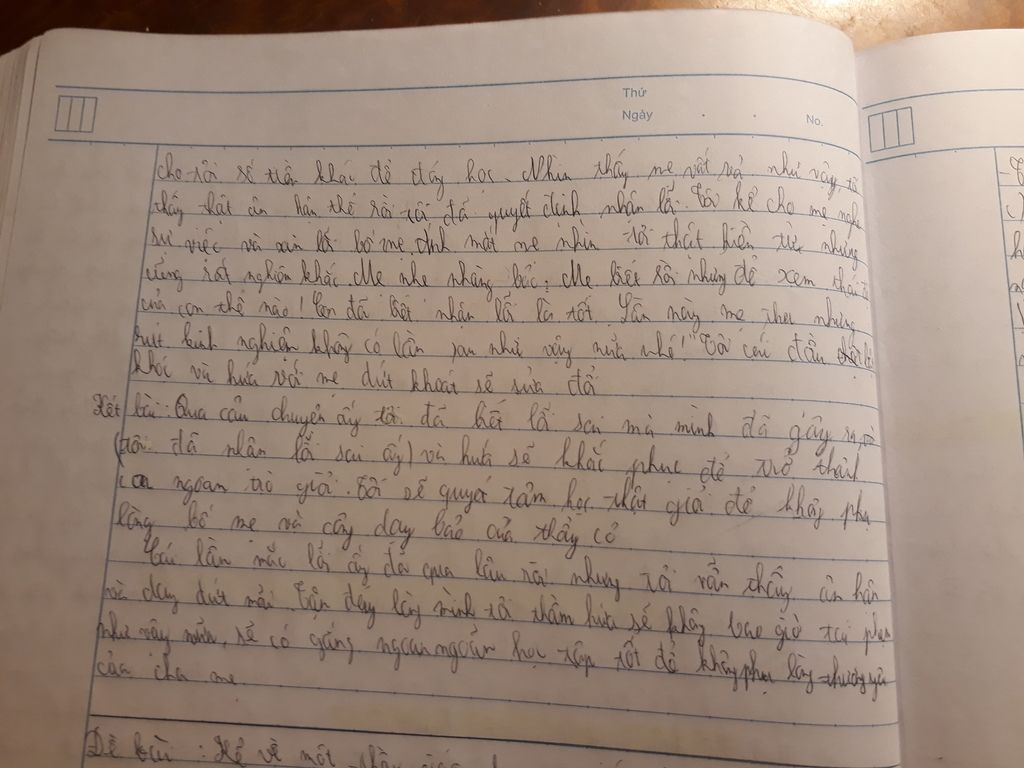 Thứ
Ngày . . No.
cho tôi số tiền khác để đóng học. Nhìn thấy mẹ vất vả như vậy tô
thấy thật ân hận thế rồi tôi đã quyết định nhận lỗi. Tôi kể cho mẹ nghe
sự việc và xin lỗi bố mẹ. Ánh mắt mẹ nhìn tôi thật hiền từ nhưng
cũng rất nghiêm khắc. Mẹ nhẹ nhàng bảo: Mẹ biết rồi nhưng để xem thái độ
của con thế nào! Con đã biết nhận lỗi là tốt. Lần này mẹ tha nhưng
rút kinh nghiệm không có lần sau như vậy nữa nhé!" Tôi cúi đầu
khóc và hứa với mẹ dứt khoát sẽ sửa đổi
Kết bài: Qua câu chuyện ấy tôi đã biết lỗi sai mà mình đã gây ra
(tôi đã nhận lỗi sai ấy) và hứa sẽ khắc phục để trở thành
con ngoan trò giỏi. Tôi sẽ quyết tâm học thật giỏi để không phụ
lòng bố mẹ và công dạy bảo của thầy cô
Cái lần mắc lỗi ấy đã qua lâu rồi nhưng tôi vẫn thấy ân hận
và day dứt mãi. Tận đáy lòng mình tôi thầm hứa sẽ không bao giờ tái phạm
như vậy nữa, sẽ cố gắng ngoan ngoãn học tập tốt để không phụ lòng thương yêu
của cha mẹ
Đề bài : Kể về một thầy giáo